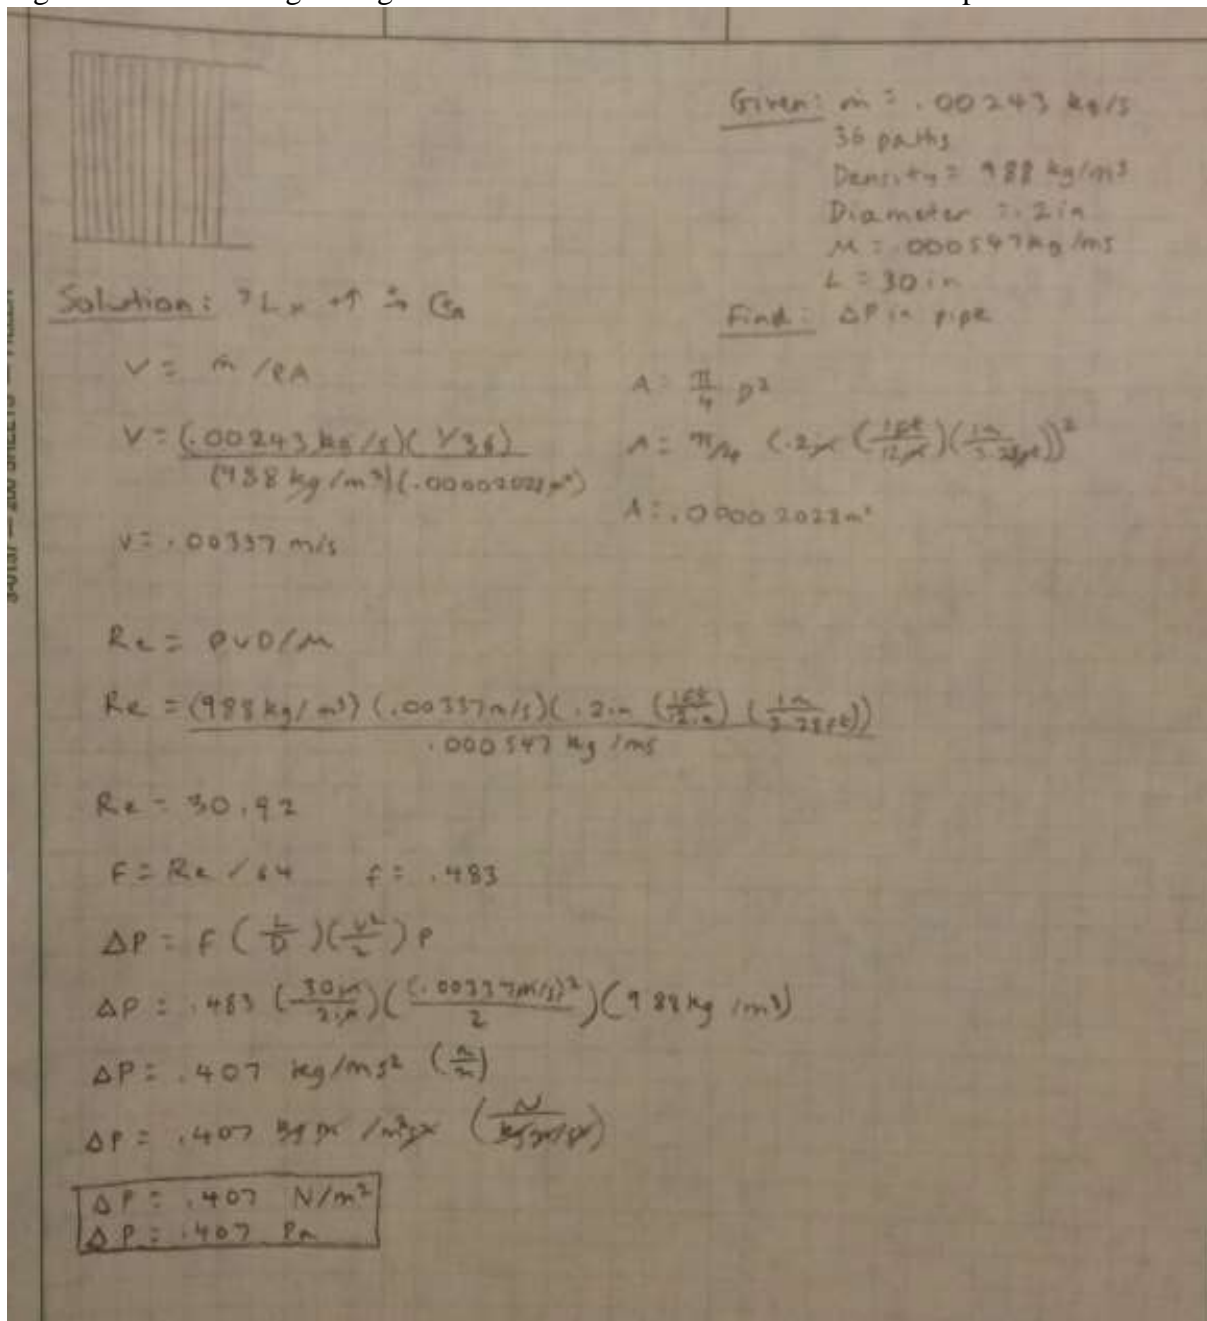 Given: ṁ = .00243 kg/s
36 paths
Density = 988 kg/m³
Diameter = .2in
M = .000547kg/ms
L = 30in
Find: ΔP in pipe
Solution:
V = ṁ/ρA
V = (.00243 kg/s)(1/36)
(988 kg/m³)(.00002028m²)
V = .00337 m/s
A = π/4 D²
A = π/4 (.2in (1ft/12in)(1m/3.28ft))²
A = .00002028m²
Re = ρVD/M
Re = (988 kg/m³)(.00337m/s)(.2in (1ft/12in)(1m/3.28ft))
.000547 kg/ms
Re = 30.92
F = Re/64 f = .483
ΔP = F (L/D)(V²/2)ρ
ΔP = .483 (30in/.2in)((.00337m/s)²/2)(988kg/m³)
ΔP = .407 kg/ms² (m/m)
ΔP = .407 kg m/m²s² (N/kg m/s²)
ΔP = .407 N/m²
ΔP = .407 Pa